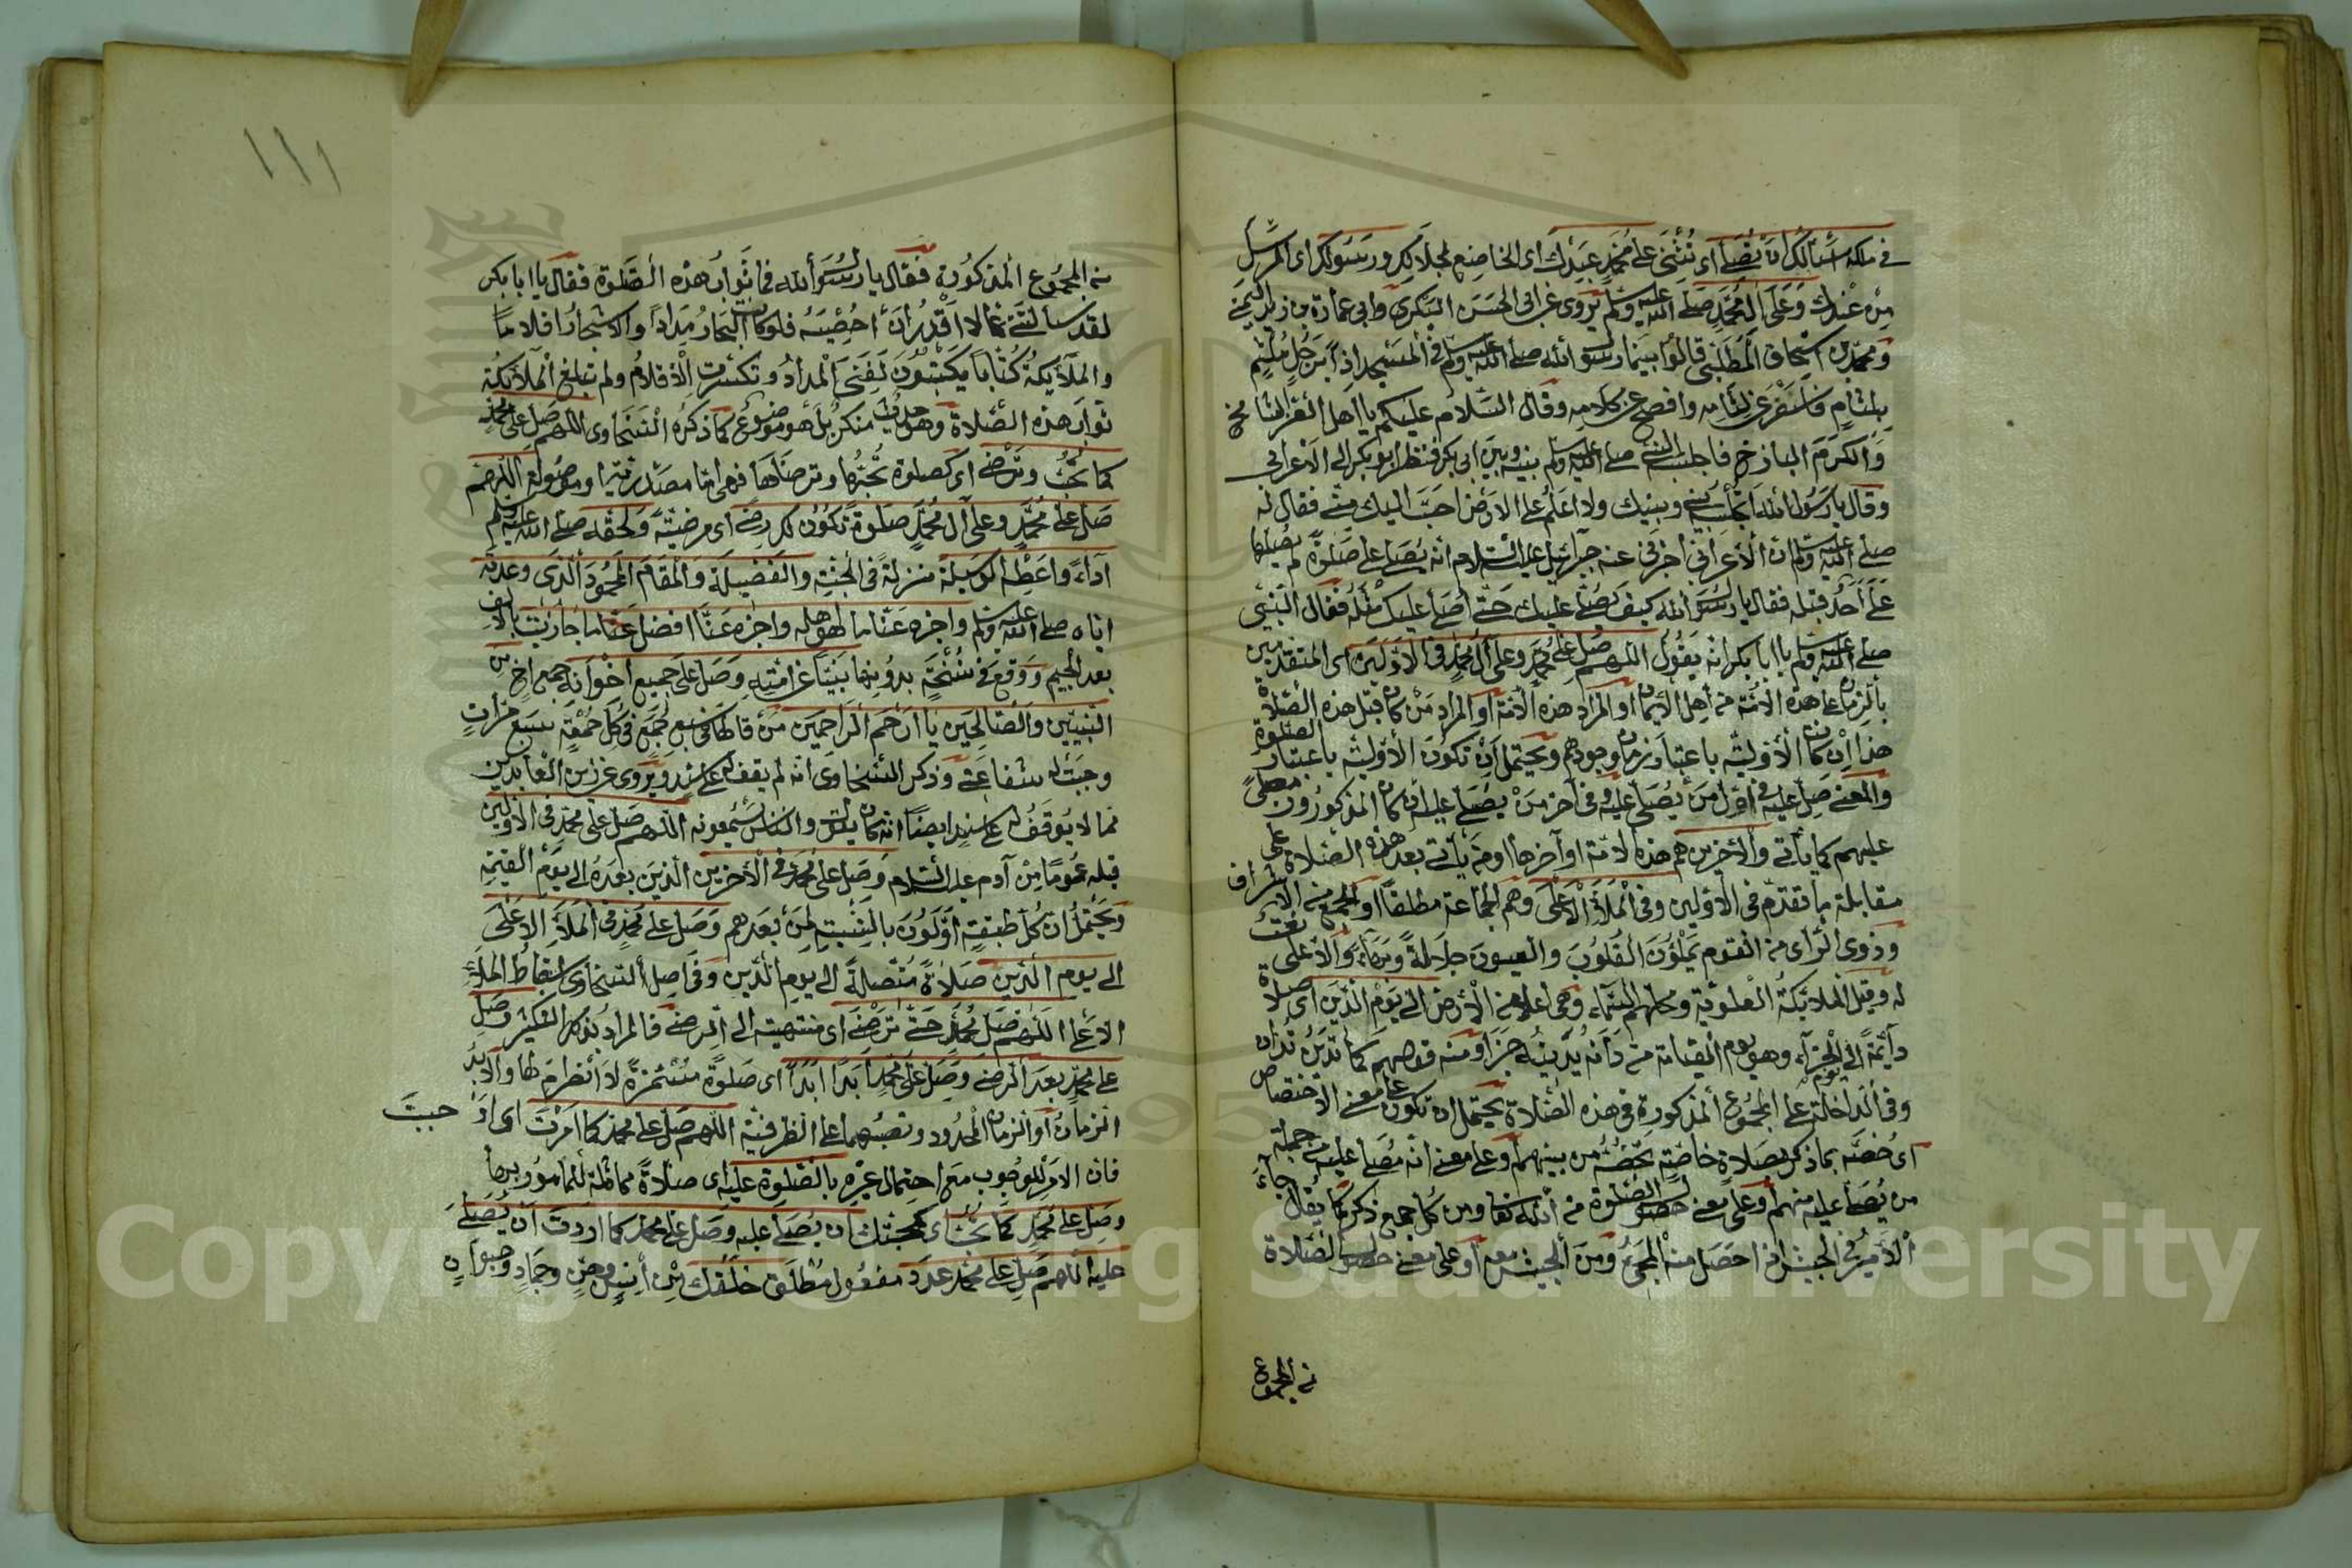 في ملكه اسالك ان تصلي اى تثنى على محمد عبدك اى الخاضع لجلالك ورسولك اى المرسل
من عندك وعلى ال محمد صلى الله عليه وسلم يروى عن ابى الحسن البكرى وابى عمارة بن زيد
ومحمد بن اسحاق المطلبى قالوا بينما رسول الله صلى الله عليه وسلم فى المسجد اذا برجل ملثم
بلثام فاسفر عن لثامه وافصح عن كلامه وقال السلام عليكم يا اهل العز الشامخ
والكرم الباذخ فاجلسه النبى صلى الله عليه وسلم بينه وبين ابى بكر فنظر ابو بكر الى الاعرابى
وقال يا رسول الله اتجلسه بينى وبينك ولا اعلم على الارض احب اليك منى فقال له
صلى الله عليه وسلم ان الاعرابى اخبرنى عنه جبرائيل عليه السلام انه يصلى على صلوة لم يصلها
على احد قبله فقال يا رسول الله كيف يصلى عليك حتى اصلى عليك مثله فقال النبى
صلى الله عليه وسلم يا ابا بكر انه يقول اللهم صل على محمد وعلى ال محمد فى الاولين اى المتقدمين
بالزمان على هذه الامة من اهل الايمان او المراد هذه الامة او المراد من كان قبل هذه الصلاة
هذا ان كان الاولية باعتبار زمان وجودهم ويحتمل ان تكون الاولية باعتبار الصلوة
والمعنى صل عليه فى اول من يصلى عليه وفى آخر من يصلى عليه ان كان المذكورون مصلى
عليهم كما يأتى والاخرين هم هذه الامة او آخرها او من يأتى بعد هذه الصلاة على
مقابلة ما تقدم فى الاولين وفى الملأ الاعلى وهم الجماعة مطلقا او الجمع من الاشراف
وذوى الراى من القوم يملؤن القلوب والعيون جلالة وبهاء والاعلى نعت
له وقيل الملائكة العلوية ومحلهم السماء وهى اعلا من الارض الى يوم الدين اى صلاة
دائمة الى يوم الجزاء وهو يوم القيامة من دانه يدينه جزاه ومنه قولهم كما تدين تدان
وفى الداخلة على المجموع المذكورة فى هذه الصلاة يحتمل ان تكون على معنى الاختصاص
اى خصه بما ذكر بصلاة خاصة تخصه من بينهم او على معنى انه مصلى عليه من جملة
من يصلى عليه منهم او على معنى حصول الصلوة من الله تعا ومن كل جمع ذكر كما يقال جاء
الامير فى الجيش اذا حصل منه المجئ ومن الجيش معه او على معنى حصول الصلاة
من المجموع
١١١
من المجموع المذكورة فقال يا رسول الله فما ثواب هذه الصلوة فقال يا ابا بكر
لقد سالتنى عما لا اقدر ان احصيه فلو كان البحار مدادا والاشجار اقلاما
والملائكة كتابا يكتبون لفنى المداد وتكسرت الاقلام ولم تبلغ الملائكة
ثواب هذه الصلاة وهو حديث منكر بل هو موضوع كما ذكره السخاوى اللهم صل على محمد
كما تحب وترضى اى كصلوة تحبها وترضاها فهى اما مصدرية او موصولة اللهم
صل على محمد وعلى آل محمد صلوة تكون لك رضى اى مرضية ولحقه صلى الله عليه وسلم
اداء واعطه الوسيلة منزلة فى الجنة والفضيلة والمقام المحمود الذى وعدته
اياه صلى الله عليه وسلم واجزه عنا ما هو اهله واجزه عنا افضل عنا ما جازيت بالالف
بعد الجيم ووقع فى نسخة بدونها نبيا عن امته وصل على جميع اخوانه جمع اخ من
النبيين والصالحين يا ارحم الراحمين من قالها فى سبع جمع فى كل جمعة سبع مرات
وجبت له شفاعتى وذكر السخاوى انه لم يقف له على سند ويروى عن زين العابدين
مما لا يوقف له على سند ايضا انه كان يقول والناس يسمعونه اللهم صل على محمد فى الاولين
قبله عموما من آدم عليه السلام وصل على محمد فى الآخرين الذين بعده الى يوم القيمة
ويحتمل ان كل طبقة اولون بالنسبة لمن بعدهم وصل على محمد فى الملأ الاعلى
الى يوم الدين صلاة متصلة الى يوم الدين وفى اصل السخاوى اسقاط الملأ
الاعلى اللهم صل محمد حتى ترضى اى منتهية الى الرضى فالمراد بذلك التكثير وصل
على محمد بعد الرضى وصل على محمد ابدا ابدا اى صلوة مستمرة لا انصرام لها والابد
الزمان او الزمان المحدود ونصبهما على الظرفية اللهم صل على محمد كما امرت اى اوجبت
فان الامر للوجوب مع احتمال غيره بالصلوة عليه اى صلاة مماثلة للمامور بها
وصل على محمد كما تحب اى كمحبتك ان يصلى عليه وصل على محمد كما اردت ان يصلى
عليه اللهم صل على محمد عدد مفعول مطلق خلقك من انس وجن وجماد وحيوان
Copyright © King Saud University